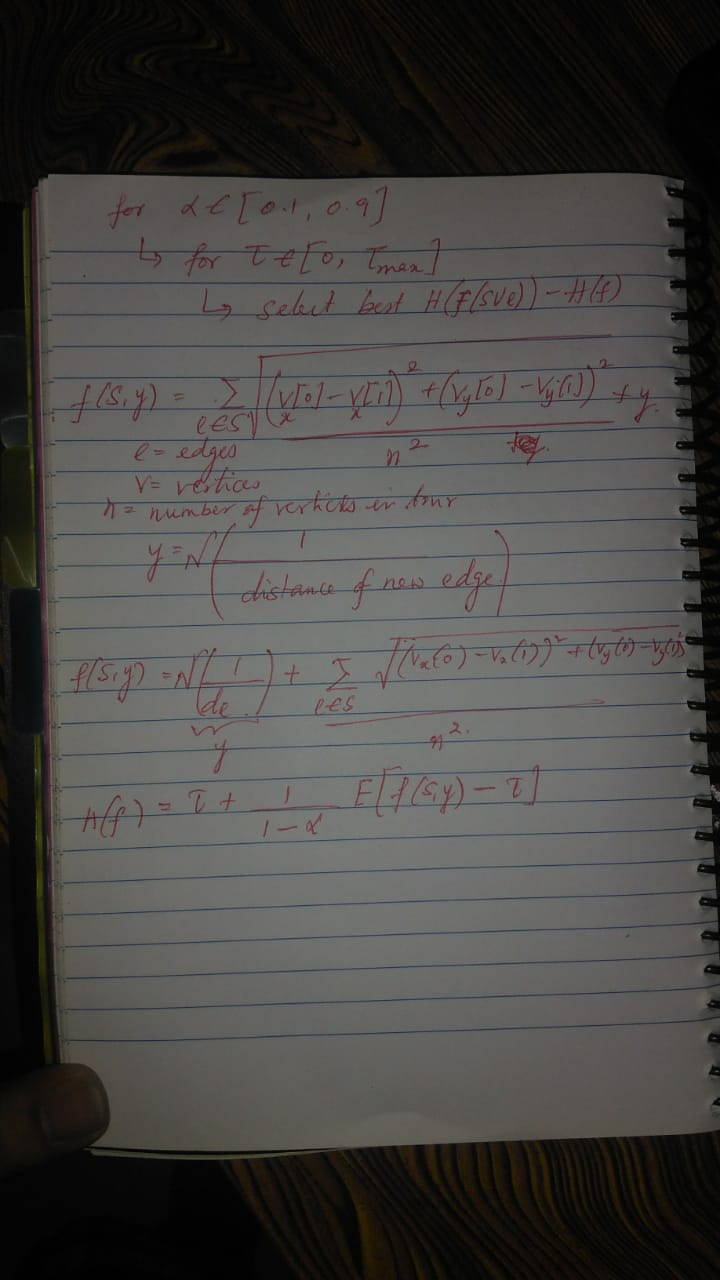 for α ∈ [0.1, 0.9]
↳ for τ ∈ [0, τmax]
↳ select best H(f(S∪e)) - H(f)
f(S,y) = Σ e∈S √(Vx[0] - Vx[1])² + (Vy[0] - Vy[1])² / n² + y
e = edges
V = vertices
n = number of vertices in tour
y = N(1 / distance of new edge)
f(S,y) = N(1 / de) + Σ e∈S √(Vx(0) - Vx(1))² + (Vy(0) - Vy(1))² / n²
y
H(f) = τ + 1 / 1-α E[f(S,y) - τ]